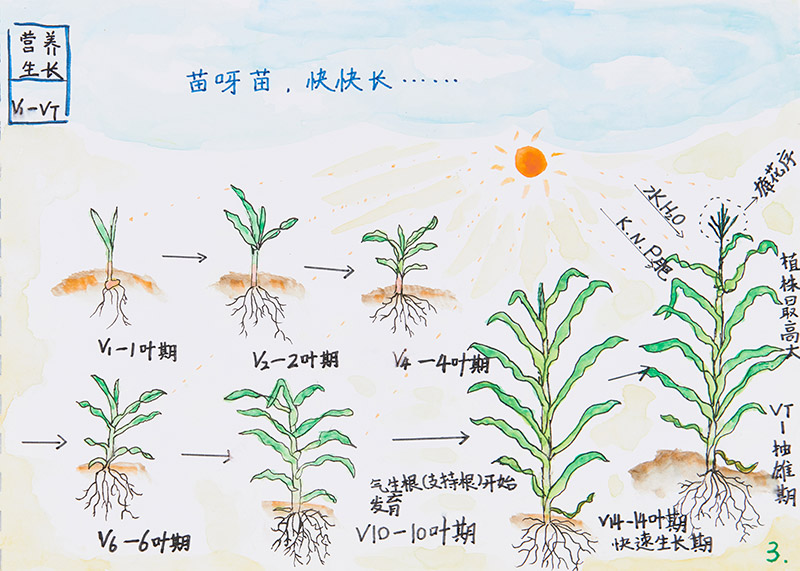 营养
生长
V1-VT
苗呀苗，快快长……
水H2O
K.N.P肥
雄花序
植株最高大
V1-1叶期
V2-2叶期
V4-4叶期
V6-6叶期
气生根(支持根)开始
发育
V10-10叶期
V14-14叶期
快速生长期
VT-抽雄期
3.